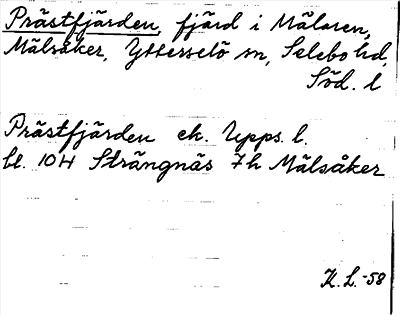 Prästfjärden, fjärd i Mälaren,
Mälsåker, Ytterselö sn, Selebo hd,
Söd. l
Prästfjärden ek. Upps. l.
bl. 10H Strängnäs 7h Mälsåker
K. L. -58